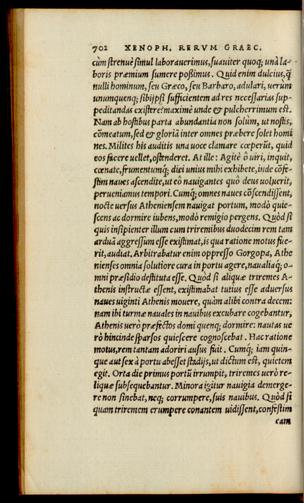 702 XENOPH. RERVM GRAEC.
cùm strenuè simul laborauerimus, suauiter quoq; unà la-
boris præmium sumere poßimus. Quid enim dulcius, q̃
nulli hominum, seu Græco, seu Barbaro, adulari, uerum
unumquenq; sibijpsi sufficientem ad res necessarias sup-
peditandas existere: maximè unde & pulcherrimum est.
Nam ab hostibus parta abundantia non solùm, ut nostis,
cõmeatum, sed & gloriã inter omnes præbere solet homi
nes. Milites his auditis una uoce clamare cœperũt, quid
eos facere uellet, ostenderet. At ille: Agitè ô uiri, inquit,
cœnate, frumentumq; diei unius mihi exhibete, inde cõfe-
stim naues ascendite, ut eò nauigantes quò deus uoluerit,
perueniamus tempori. Cumq; omnes naues cõscendissent,
nocte uersus Atheniensem nauigat portum, modò quie-
scens ac dormire iubens, modò remigio pergens. Quòd si
quis insipienter illum cum triremibus duodecim rem tam
arduã aggressum esse existimat, is qua ratione motus fue-
rit, audiat. Arbitrabatur enim oppresso Gorgopa, Athe
nienses omnia solutiore cura in portu agere, naualiaq́; o-
mni præsidio destituta esse. Quòd si aliquæ triremes A-
thenis instructæ essent, existimabat tutius esse aduersus
naues uiginti Athenis mouere, quàm alibi contra decem:
nam ibi turmæ nauales in nauibus excubare cogebantur,
Athenis uerò præfectos domi quenq; dormire: nautas ue
rò hinc inde sparsos quiescere cognoscebat. Hac ratione
motus, rem tantam adoriri ausus fuit. Cumq; iam quin-
que aut sex à portu abesset stadijs, ut dictum est, quietem
egit. Orta die primus portũ irrumpit, triremes uerò re-
liquæ subsequebantur. Minora igitur nauigia demerge-
re non sinebat, neq; corrumpere, suis nauibus. Quòd si
quam triremem erumpere conantem uidissent, confestim
eam